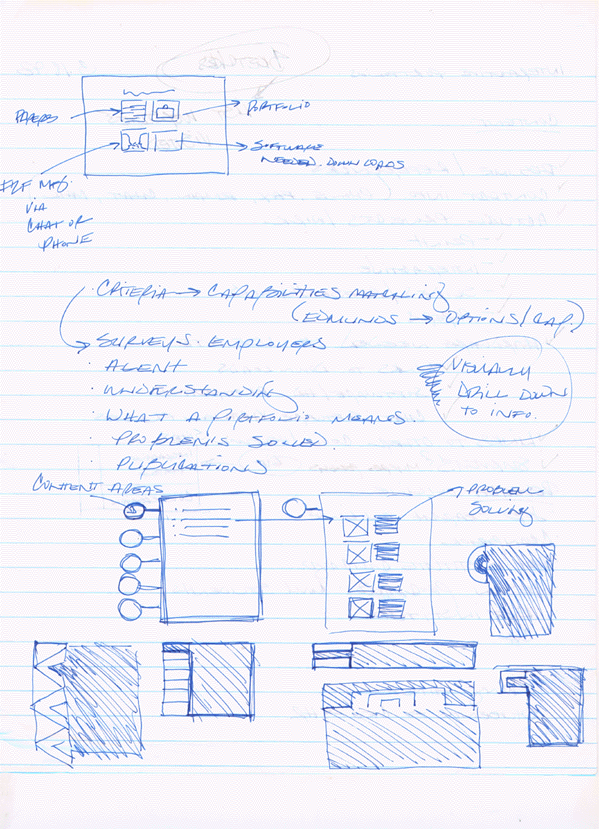 PAPERS
PORTFOLIO
SOFTWARE
NEEDED. DOWNLOADS
F2F MTG
VIA
CHAT OR
PHONE
· CRITERIA → CAPABILITIES MATCHING
(EDMUNDS → OPTIONS/CAP.)
→ SURVEYS. EMPLOYERS
· AGENT
· UNDERSTANDING
· WHAT A PORTFOLIO MEANS.
· PROBLEMS SOLVED.
· PUBLICATIONS
VISUALLY
DRILL DOWN
TO INFO.
CONTENT AREAS
PROBLEM
SOLVING